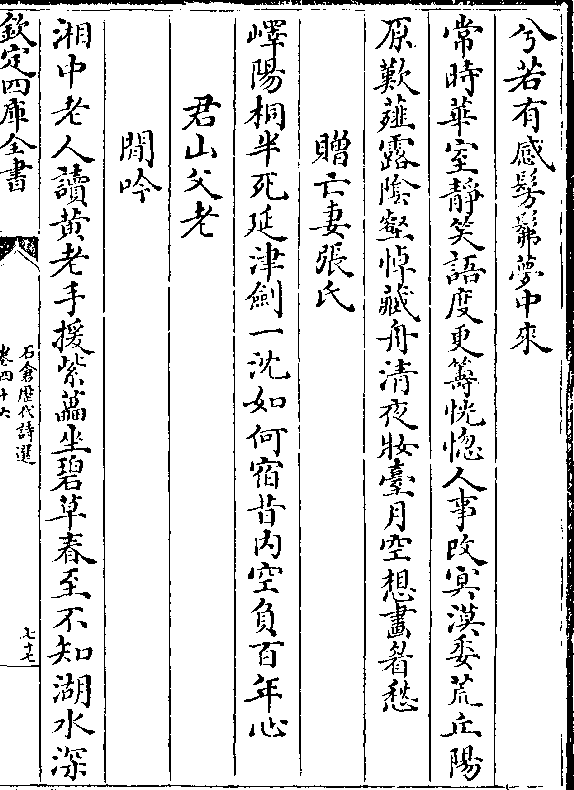 兮若有感髣髴夢中來
常時華室靜笑語度更籌恍惚人事改冥漠委荒丘陽
原歎薤露陰壑悼藏舟清夜妝臺月空想畫眉愁
贈亡妻張氏
嶧陽桐半死延津劍一沈如何宿昔内空負百年心
君山父老
閒吟
湘中老人讀黄老手援紫藟坐碧草春至不知湖水深
欽定四庫全書
石倉歴代詩選
卷四十六
七十七